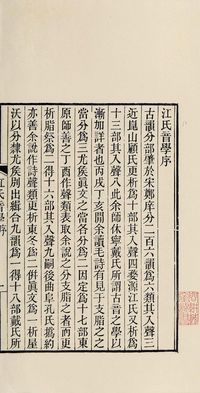 江氏音學序
古韻分部肇於宋鄭庠分二百六韻為六類其入聲三
近崑山顧氏更析為十部其入聲四婺源江氏又析為
十三部其入聲八此余師休寧戴氏所謂古音之學以
漸加詳者也丙戌丁亥閒余讀毛詩有見于支脂之之
當分為三尤矦眞文之當各分為二因定為十七部東
原師善之丁酉作聲類表取余說之分支脂之者而更
析脂祭為二得十六部其入聲九嗣後曲阜孔氏撝約
亦善余說作詩聲類更析東冬為二併眞文為一析屋
沃以分隸尤矦別出緝合九韻為一得十八部戴氏所
江氏音學序 一